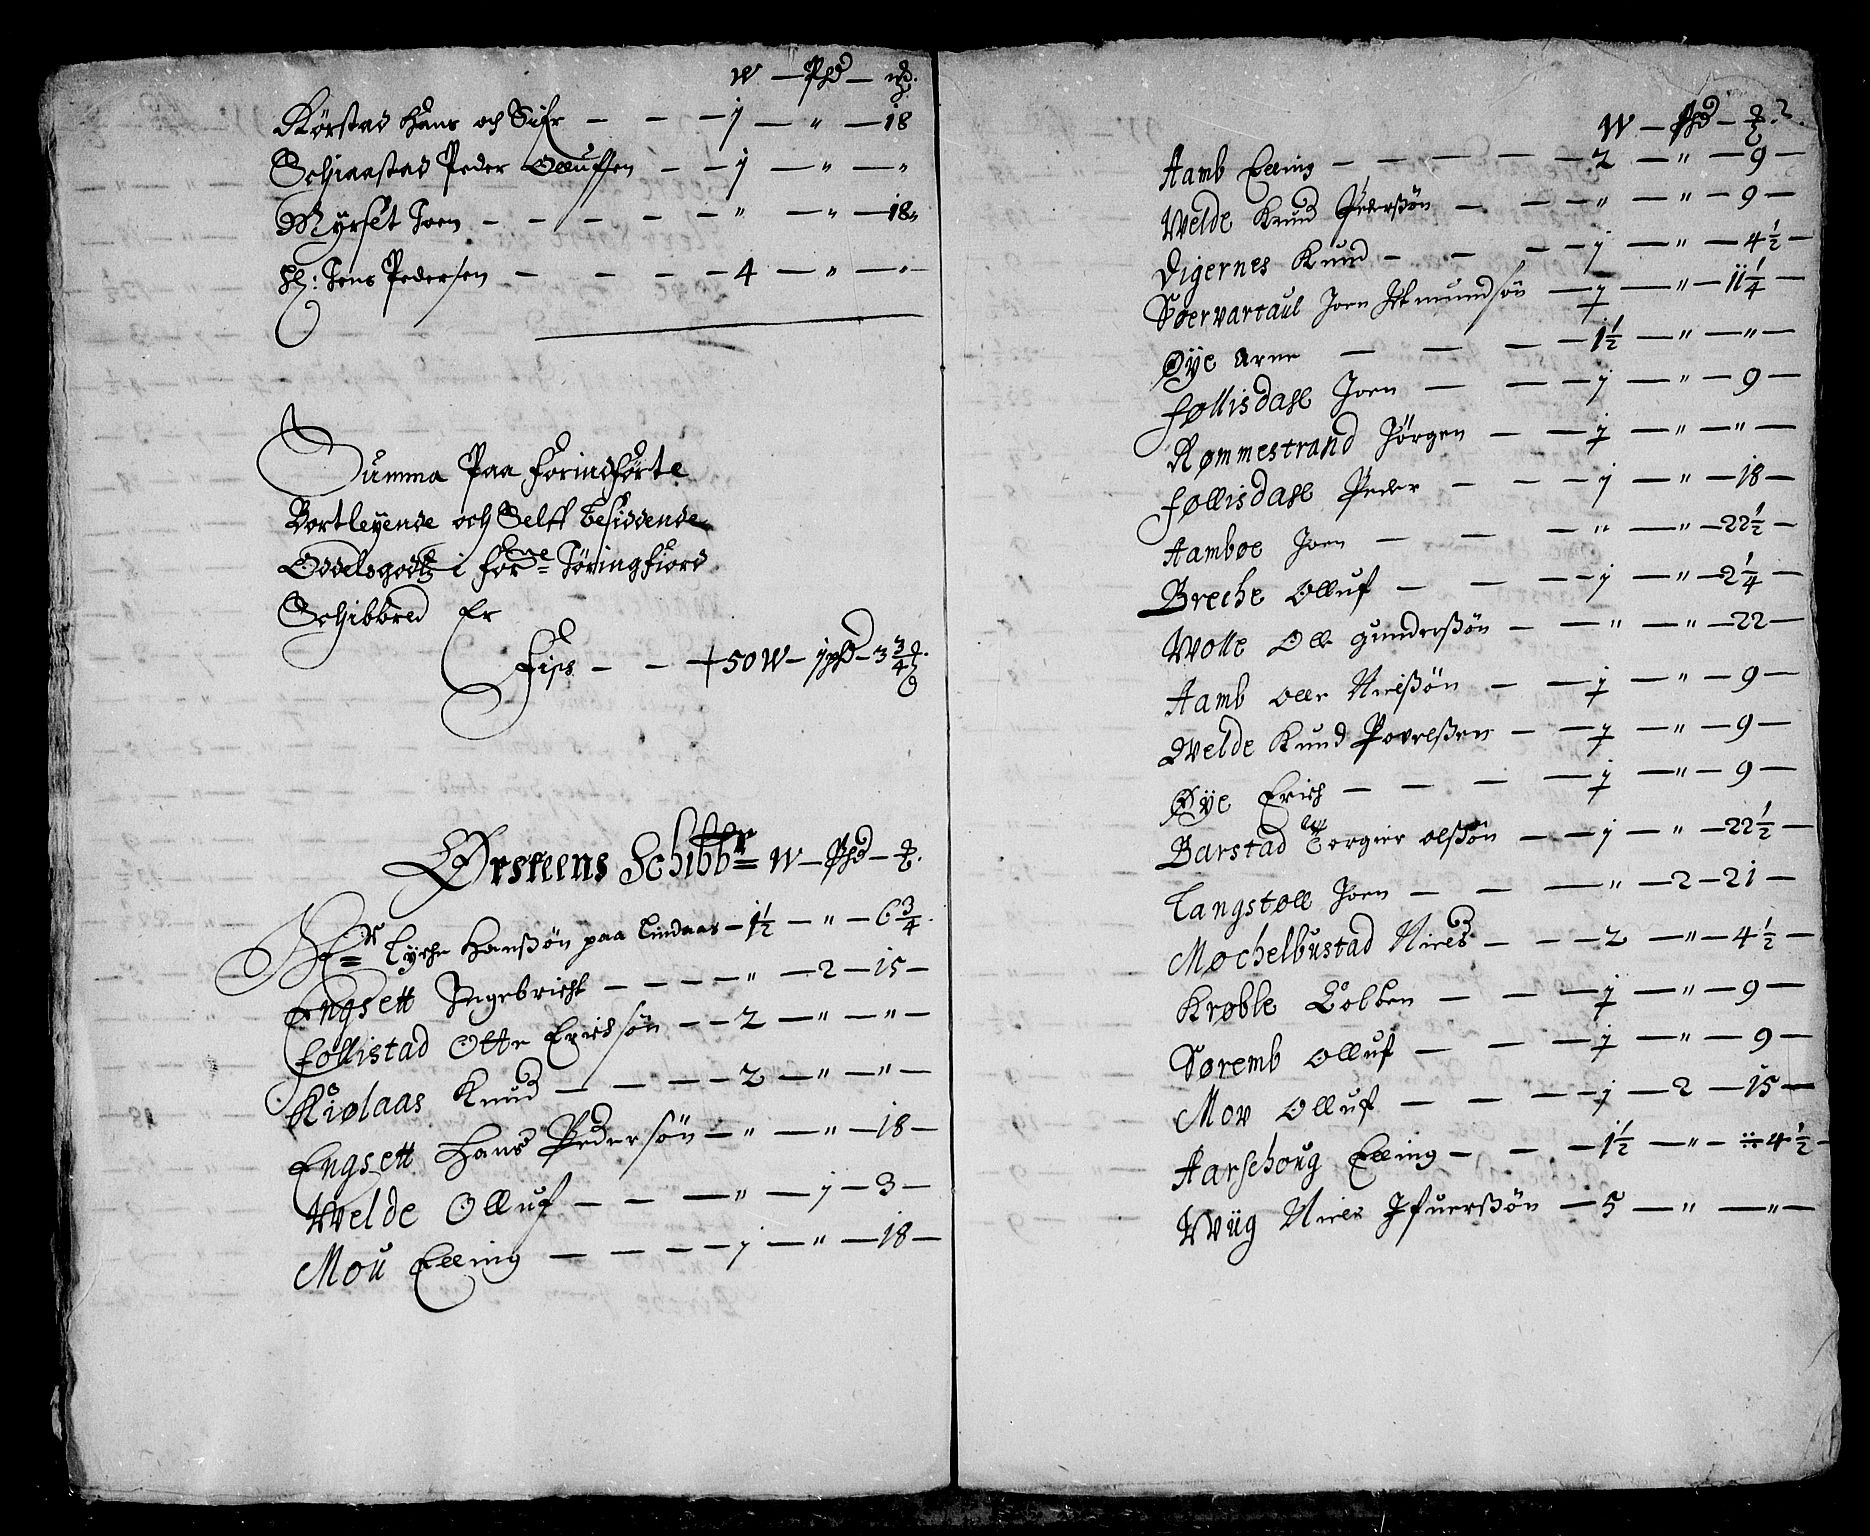 W — Pd — mk.
Rörstad Hans och Sifr — — — 1 — " — 18
Schiaastad Peder Olluffsen — — 1 — " — "
Myrset Joen — — — — — " — " — 18
Hr: Jens Pedersen — — — — 4 — " — "
Summa Paa forindförte
Bortleyende och Selff besiddende
Oddelsgodtz i forne Jöringfiord
Schibbred Er
Fisk — — — 50 W — 1 pd — 3 3/4
Ørsteens Schibbr W — Pd —
Hr Lyche Hanssön paa Lindaas — 1 1/2 — " — 6 3/4
Engsett Ingebricht — — — — " — 2 — 15 —
Follistad Otte Erichsön — — 2 — " — " —
Kiølaas Knud — — — — 2 — " — " —
Engsett Hans Pedersön — " — " — 18 —
Welde Olluf — — — " — 1 — 3 —
Mou Elling — — — — 1 — " — 18 —
W — Pd — 2.
Aamb Elling — — — — — 2 — " — 9 —
Welde Knud Pederssön — — — " — " — 9 —
Digernes Knud — — — — 1 — " — 4 1/2 —
Søervartaul Joen Asmundsön — 1 — " — 11 1/4 —
Øye Arne — — — — 1 1/2 — " — " —
Føllisdahl Joen — — — 1 — " — 9 —
Rømmestrand Jörgen — — 1 — " — " —
Føllisdahl Peder — — — 1 — " — 18 —
Aamboe Joen — — — " — " — 22 1/2 —
Breche Olluf — — — 1 — " — 2 1/4 —
Wolle Oll gunderssön — — " — " — 22 —
Aamb Olle Nielssön — — 1 — " — 9 —
Welde Knud Povelssen — — 1 — " — 9 —
Øye Erich — — — — 1 — " — 9 —
Barstad Torgier olssön — — 1 — " — 22 1/2 —
Langstøll Joen — — — " — 2 — 21 —
Mochelbustad Niels — — — 2 — " — 4 1/2 —
Krøble Colben — — — 1 — " — 9 —
Søremb Olluf — — — 1 — " — 9 —
Mov Olluf — — — — 1 — 2 — 15 —
Aarschoug Elling — — — 1 1/2 — " — 4 1/2 —
Wüg Niels Ifuerssön — 5 — " — " —